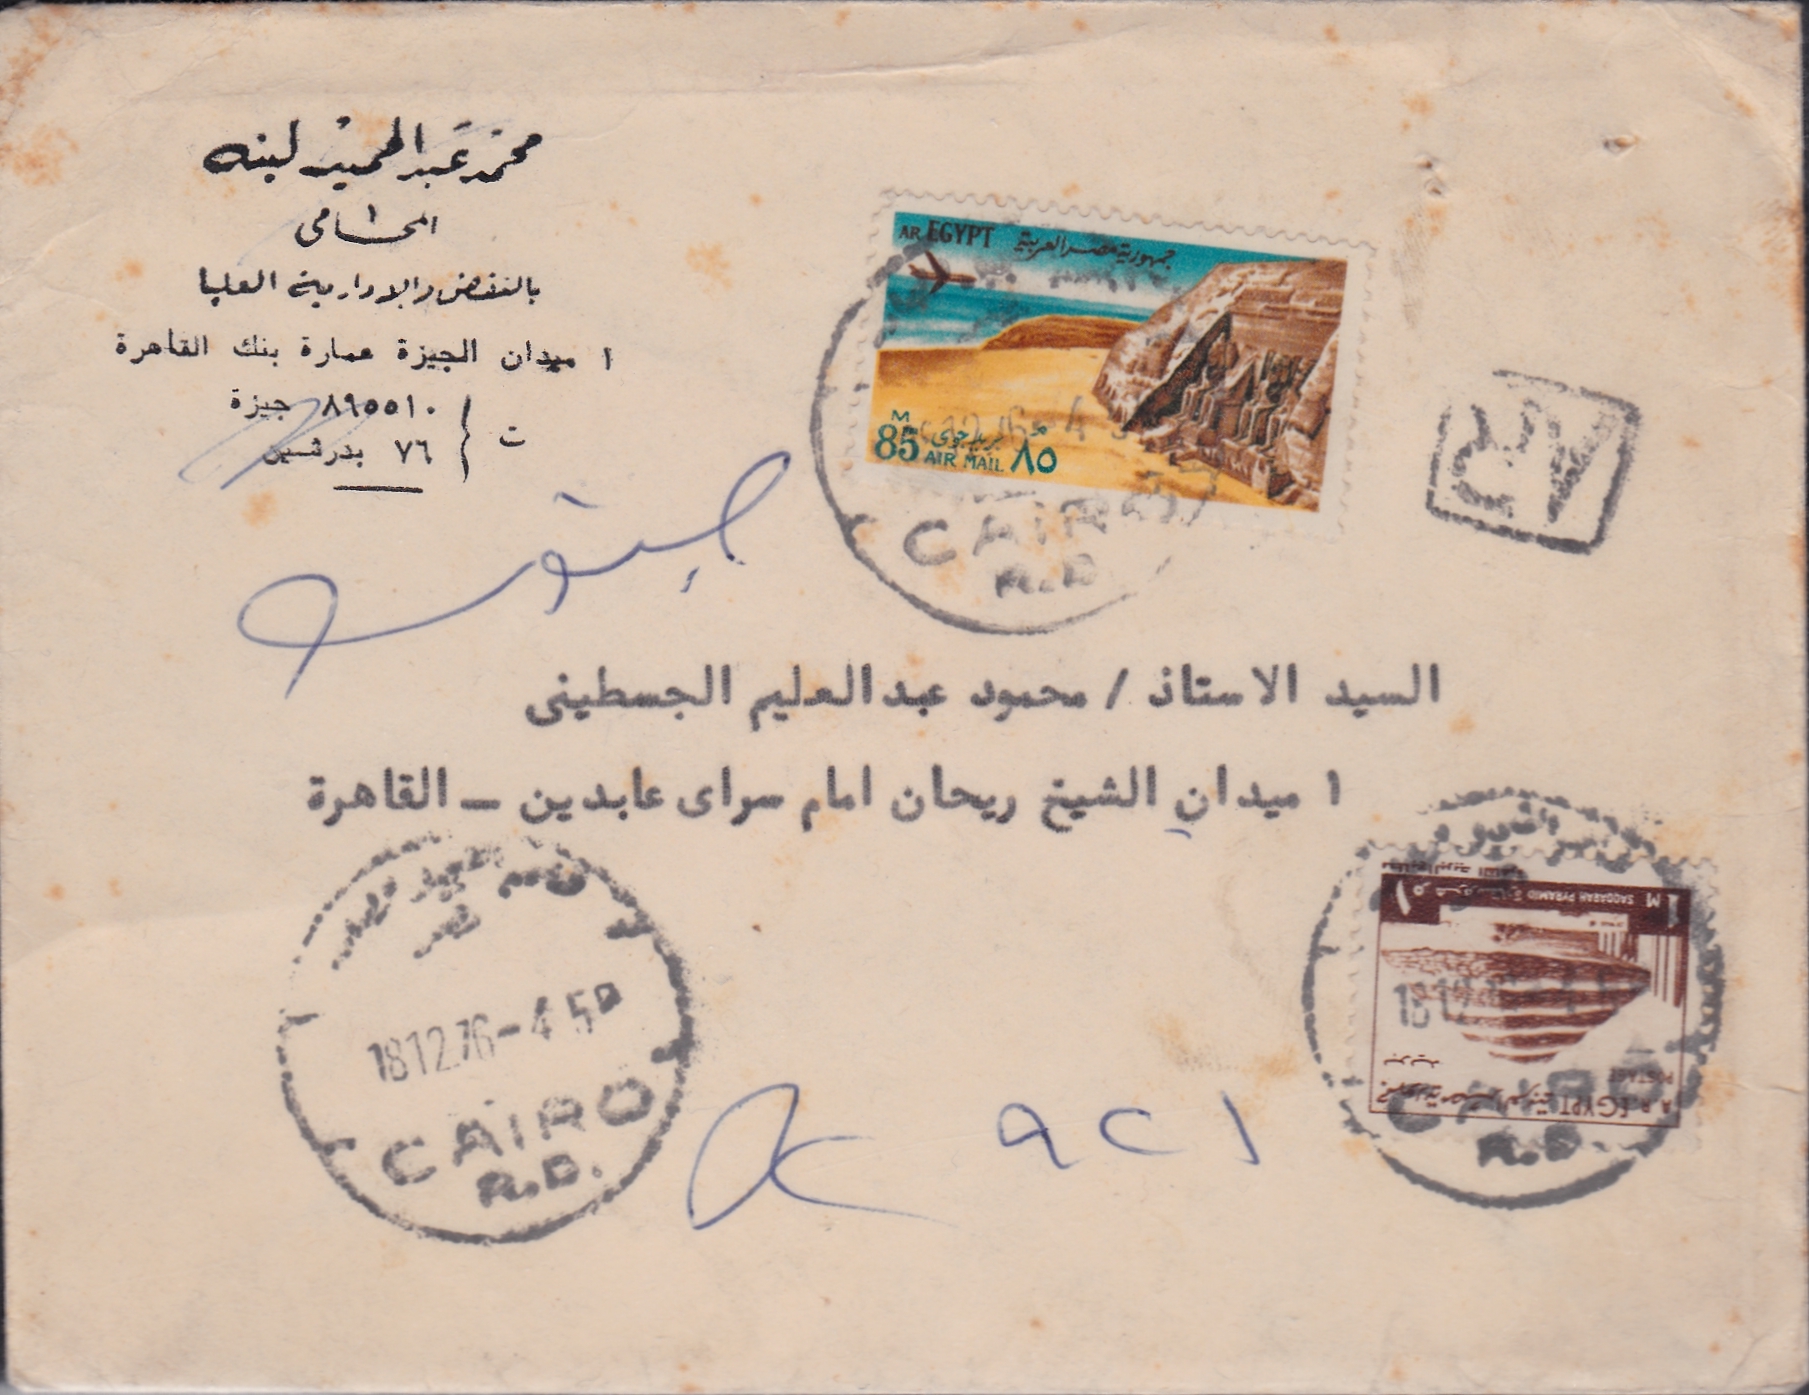 محمد عبد الحميد لبنه
المحامى
بالنقض والادارية العليا
١ ميدان الجيزة عمارة بنك القاهرة
ت { ٨٩٥٥١٠ جيزة
٧٦ بدرشين
AR EGYPT جمهورية مصر العربية
M 85 بريد جوى AIR MAIL ٨٥ م
CAIRO
R.D.
السيد الاستاذ / محمود عبد العليم الجسطينى
١ ميدان الشيخ ريحان امام سراى عابدين - القاهرة
18 12.76-4 5P
CAIRO
R.D.
٩٢١
1 M SAQQARAH PYRAMID
بريد POSTAGE
A.R. EGYPT جمهورية مصر العربية
18 12
CAIRO
R.D.